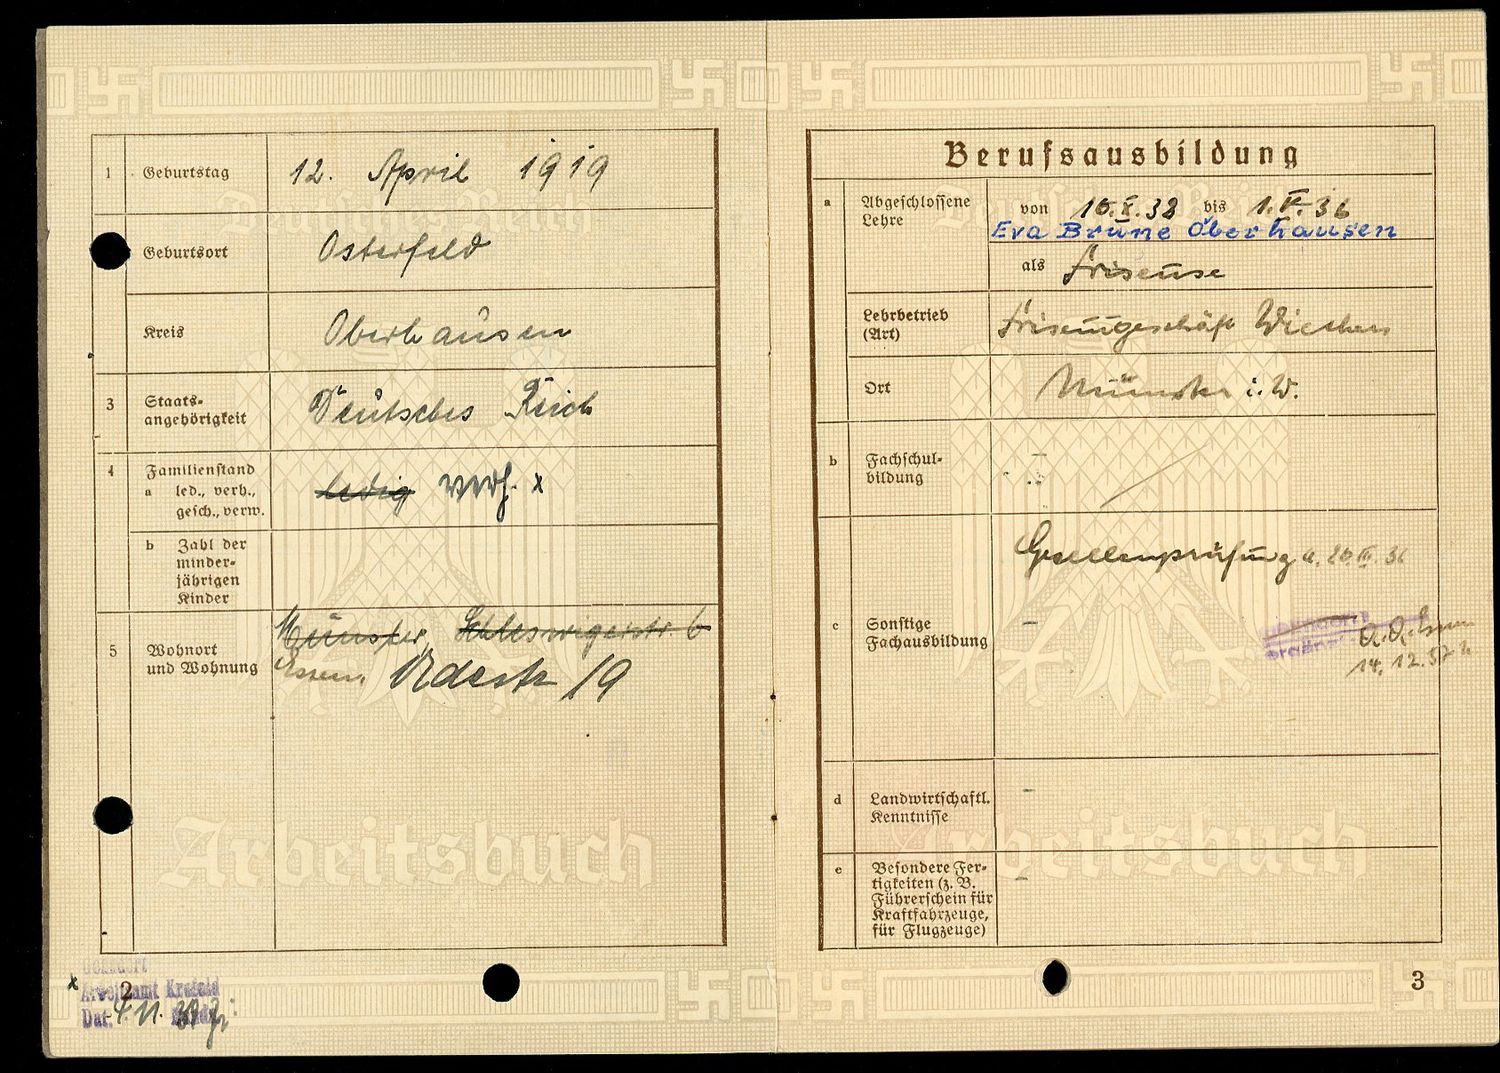 1 Geburtstag 12. April 1919
Geburtsort Osterfeld
Kreis Oberhausen
3 Staats-
angehörigkeit Deutsches Reich
4 Familienstand
a led., verh.,
gesch., verw. ledig verh. x
b Zahl der
minder-
jährigen
Kinder
5 Wohnort
und Wohnung
Münster, Schleswigerstr. 6
Essen,
19
Deutsches Reich
Arbeitsbuch
x
Geändert
Arbeitsamt Krefeld
Dat. 4. 11. 39
2
Berufsausbildung
a Abgeschlossene
Lehre
von 16.X.32 bis 1.V.36
Eva Brüne Oberhausen
als Friseuse
Lehrbetrieb
(Art) Friseurgeschäft
Ort Münster i. W.
b Fachschul-
bildung
c Sonstige
Fachausbildung
Gesellenprüfung a. 26.III.36
14.12.37
d Landwirtschaftl.
Kenntnisse -
e Besondere Fer-
tigkeiten (z. B.
Führerschein für
Kraftfahrzeuge,
für Flugzeuge) -
Deutsches Reich
Arbeitsbuch
3